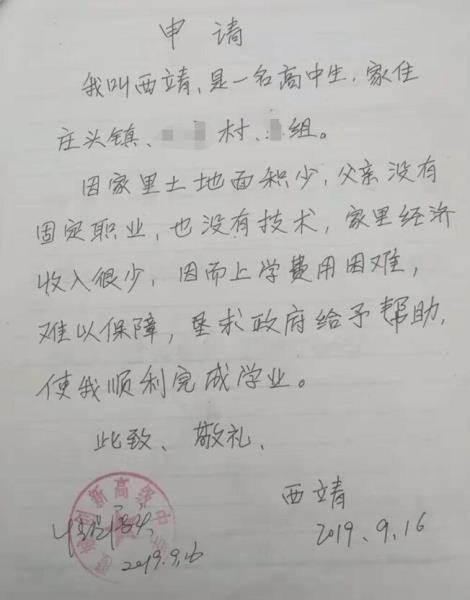 申 请
我叫西靖,是一名高中生,家住
庄头镇、 村、 组。
因家里土地面积少,父亲没有
固定职业,也没有技术,家里经济
收入很少,因而上学费用困难,
难以保障,垦求政府给予帮助,
使我顺利完成学业。
此致、敬礼、
西靖
2019.9.16
新高级中
2019.9.16